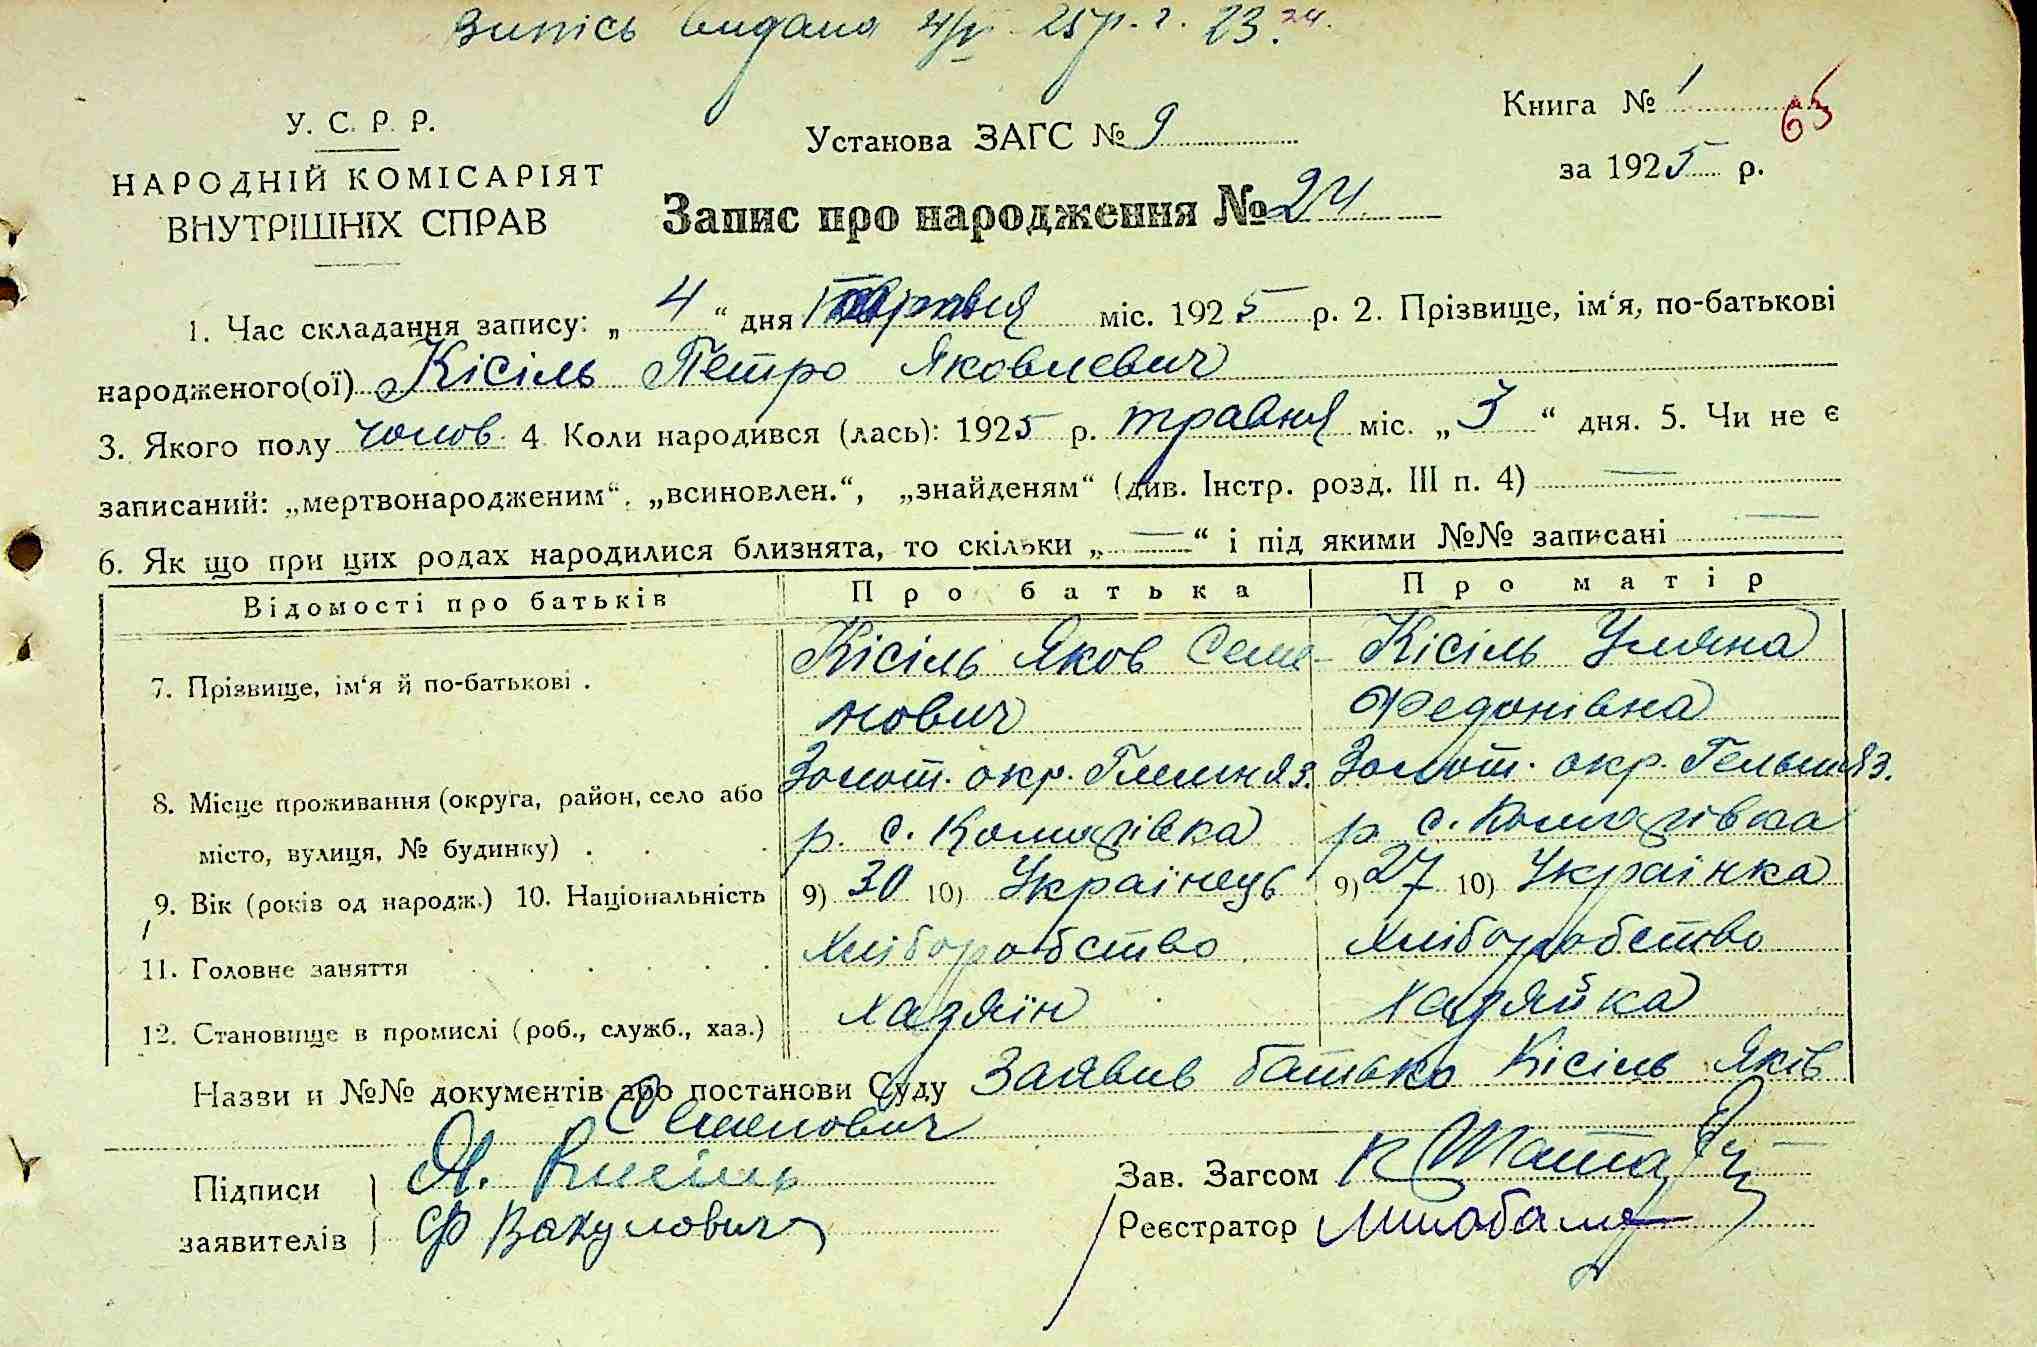 Випісь видана 4/V 25 р. г. 23. 24.
Книга № 1 65
У. С. Р. Р.
Установа ЗАГС № 9
за 1925 р.
НАРОДНІЙ КОМІСАРІЯТ
ВНУТРІШНІХ СПРАВ
Запис про народження № 24
1. Час складання запису: „ 4 “ дня Травня міс. 1925 р. 2. Прізвище, ім‘я, по-батькові
народженого(ої) Кісіль Петро Яковлевич
3. Якого полу чолов. 4 Коли народився (лась): 1925 р. травня міс. „ 3 “ дня. 5. Чи не є
записаний: „мертвонародженим“, „всиновлен.“, „знайденям“ (див. Інстр. розд. III п. 4) —
6. Як що при цих родах народилися близнята, то скільки „ — “ і під якими №№ записані —
Відомості про батьків Про батька Про матір
7. Прізвище, ім‘я й по-батькові . Кісіль Яков Семе- Кісіль Уляна
нович Федонівна
Золот. окр. Гелмняз. Золот. окр. Гельмяз.
8. Місце проживання (округа, район, село або
р. с. Комарівка р. с. Комарівка
місто, вулиця, № будинку) .
9. Вік (років од народж.) 10. Національність 9) 30 10) Українець 9) 27 10) Українка
11. Головне заняття Хліборобство Хліборобство
12. Становище в промислі (роб., служб., хаз.) Хазяїн Хазяйка
Назви и №№ документів або постанови Суду Заявив батько Кісіль Яків
Семенович
Підписи Я. Кисіль Зав. Загсом К
заявителів Ф Вакулович Реєстратор